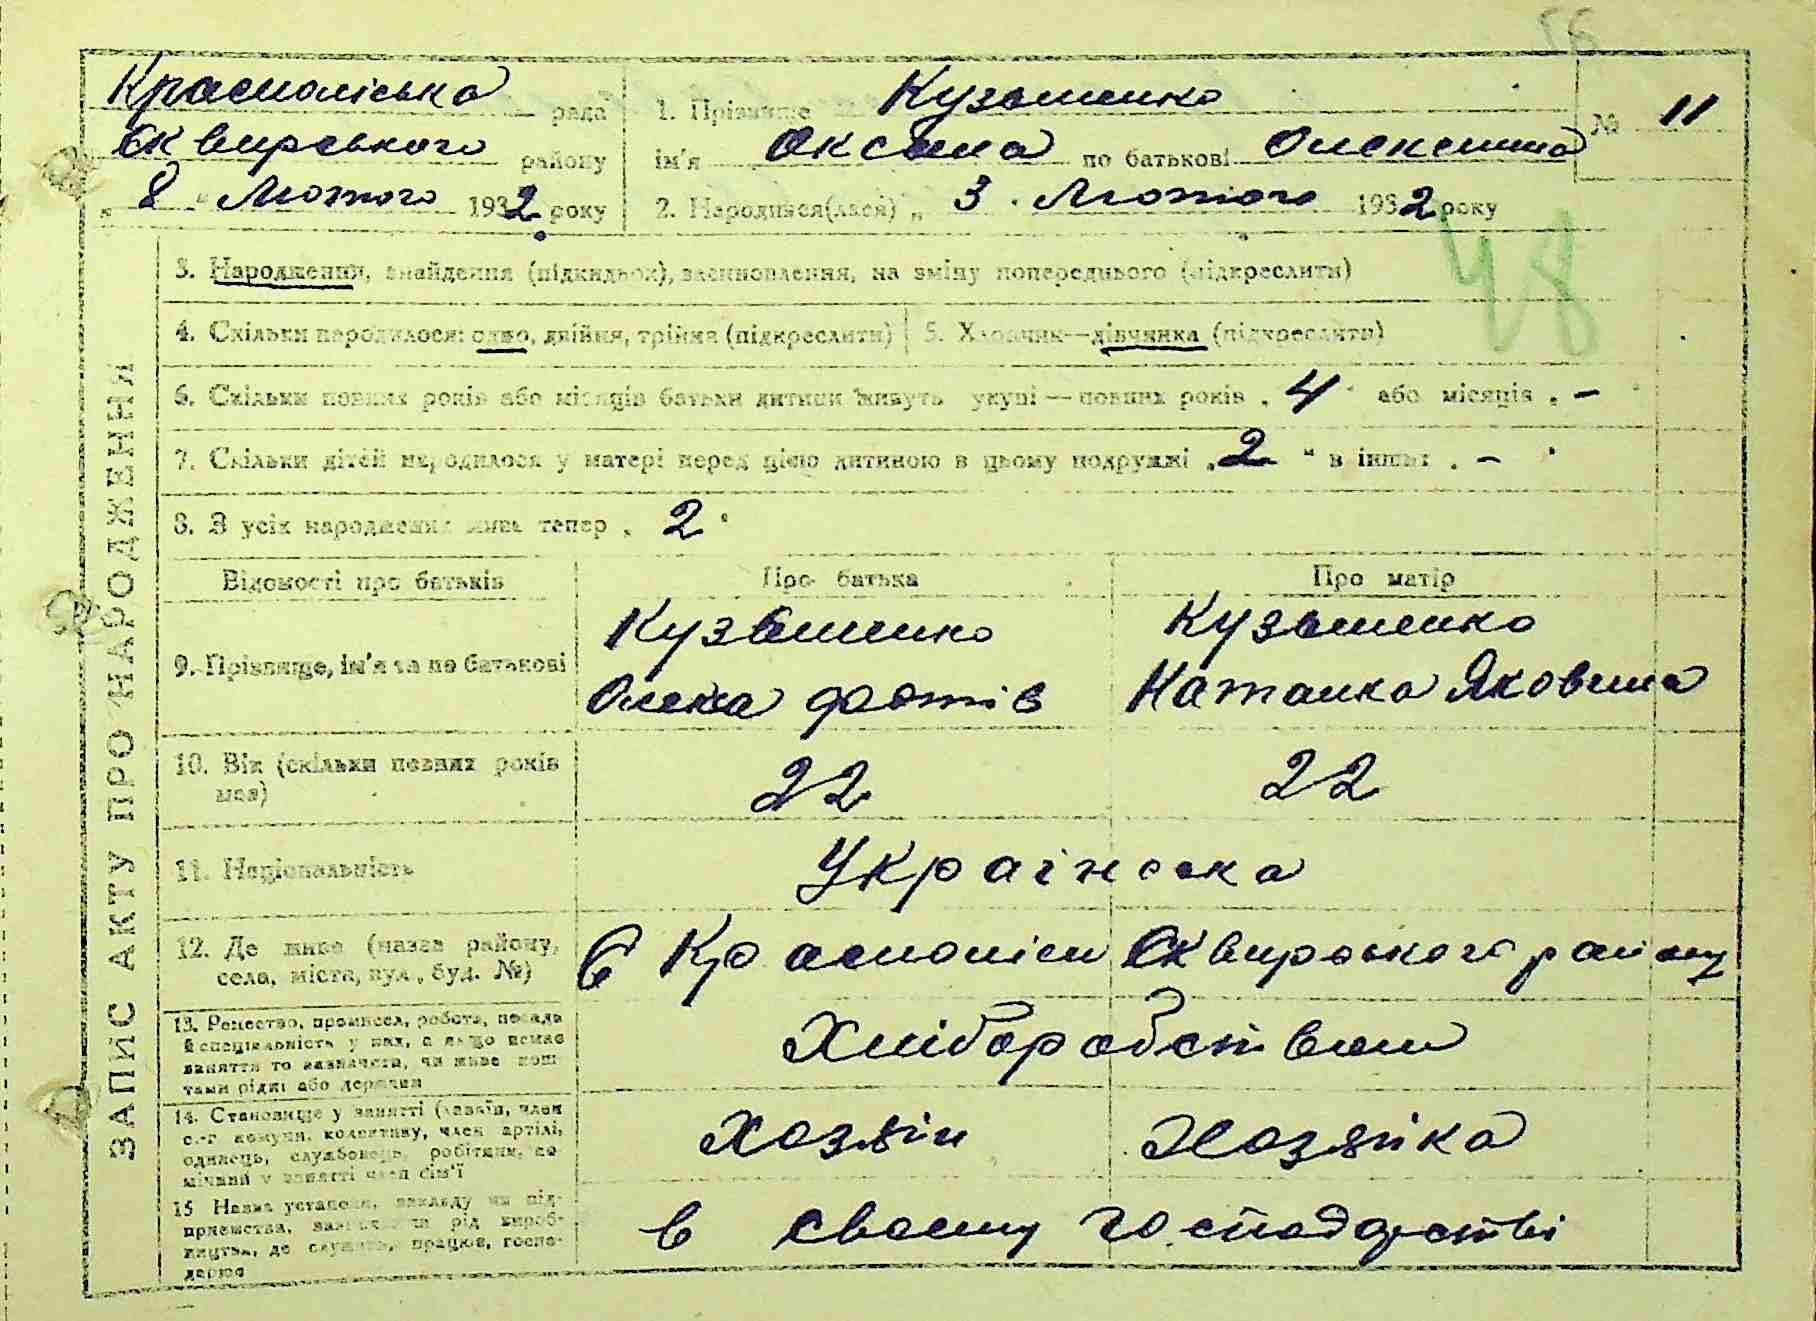 56
Краснолiська рада
Сквирського району
„ 8 " Лютого 1932 року
1. Прізвище Кузьменко
ім'я Оксана по батькові Олексіївна
2. Народився(лася) „ 3 . Лютого 1932 року
№ 11
48
3. Народження, знайдення (підкидьок), усиновлення, на зміну попереднього (підкреслити)
4. Скільки народилося: одно, двійня, трійня (підкреслити)
5. Хлопчик—дівчинка (підкреслити)
6. Скільки повних років або місяців батьки дитини живуть укупі — повних років „ 4 " або місяців „ — "
7. Скільки дітей народилося у матері перед цією дитиною в цьому подружжі „ 2 " в інших „ — "
8. З усіх народжених живе тепер „ 2 "
Відомості про батьків
Про батька
Про матір
9. Прізвище, ім'я та по батькові
Кузьменко
Олекса
Кузьменко
Наталка Яковина
10. Вік (скільки повних років має)
22
22
11. Національність
Українська
12. Де живе (назва району,
села, міста, вул., буд. №)
Сквирського району
13. Ремество, промисел, робота, посада
й спеціяльність у них, а якщо немає
заняття то зазначити, чи живе кош-
тами рідні або держави
Хліборобством
14. Становище у занятті (хазяїн, член
с.-г комуни, колективу, член артілі,
одинець, службовець, робітник, по-
мічний у занятті член сім'ї
Хозяїн
Хозяйка
15 Назва установи, закладу чи під-
приємства, рід вироб-
ництва, де служить, працює, госпо-
дарює
в своєму господарстві
ЗАПИС АКТУ ПРО НАРОДЖЕННЯ